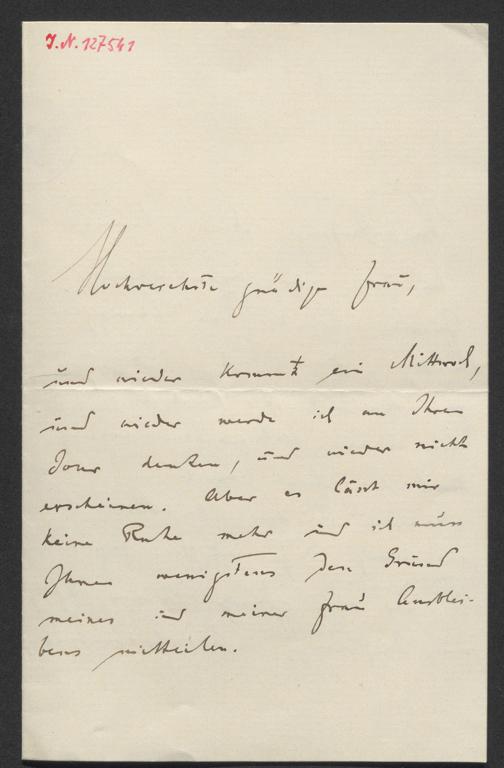 J.N. 127541
Hochverehrte gnädige Frau,
und wieder kommt ein Mittwoch,
und wieder werde ich an Ihren
Jour denken, und wieder nicht
erscheinen. Aber es lässt mir
keine Ruhe mehr und ich muss
Ihnen wenigstens den Grund
meines und meiner Frau Ausblei-
bens mittheilen.